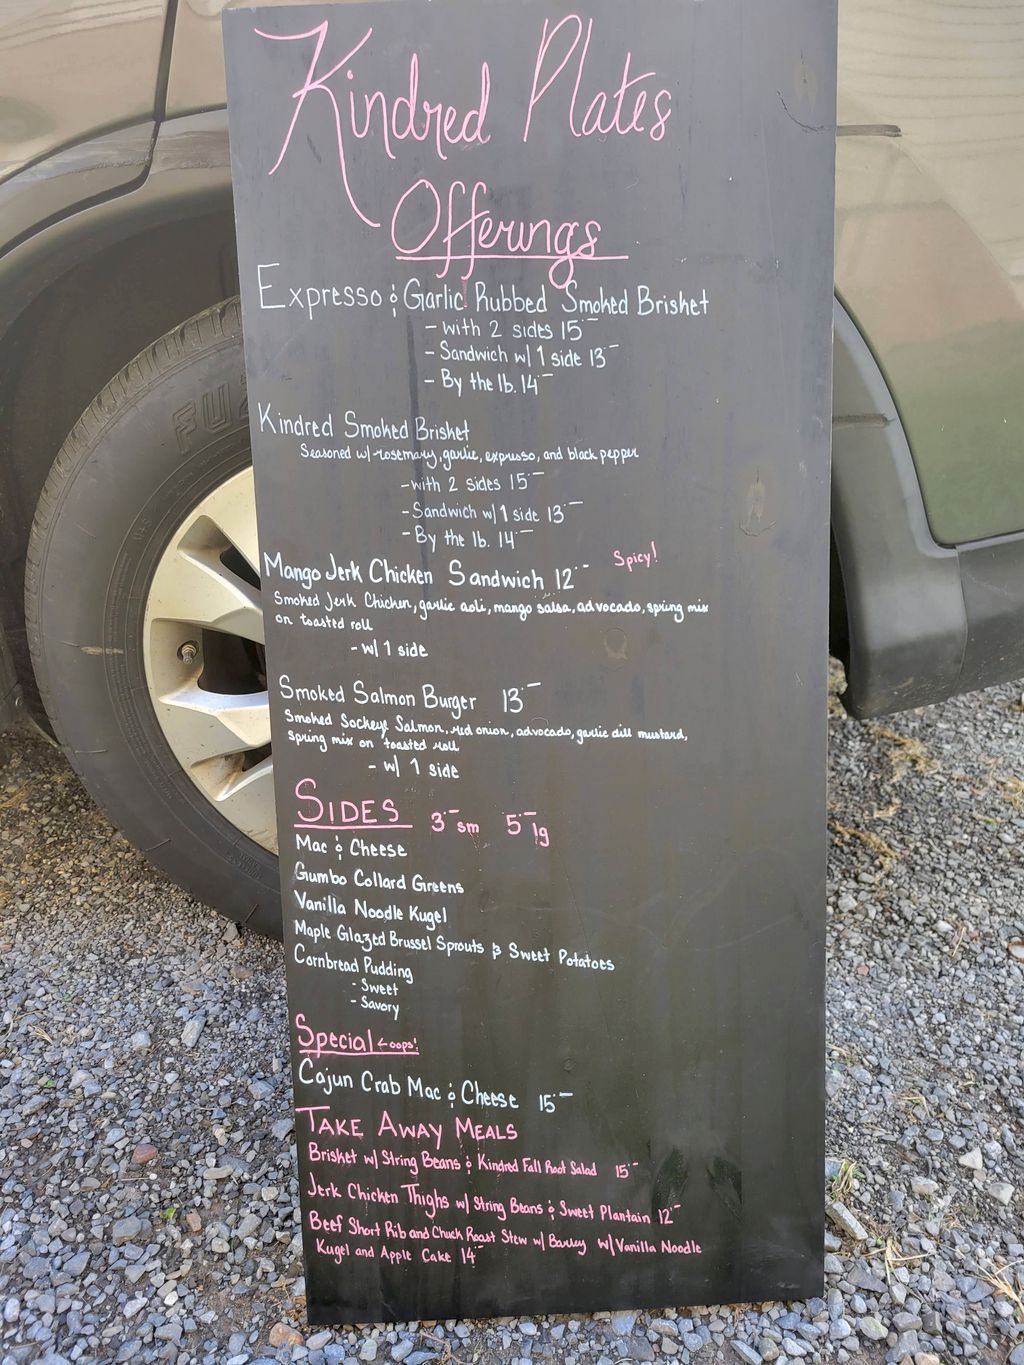 Kindred Plates
Offerings
Expresso & Garlic Rubbed Smoked Brisket
- with 2 sides 15.–
- Sandwich w/ 1 side 13.–
- By the lb. 14.–
Kindred Smoked Brisket
Seasoned w/ rosemary, garlic, expresso, and black pepper
- with 2 sides 15.–
- Sandwich w/ 1 side 13.–
- By the lb. 14.–
Mango Jerk Chicken Sandwich 12.– Spicy!
Smoked Jerk Chicken, garlic aoli, mango salsa, advocado, spring mix
on toasted roll
- w/ 1 side
Smoked Salmon Burger 13.–
Smoked Sockeye Salmon, red onion, advocado, garlic dill mustard,
spring mix on toasted roll
- w/ 1 side
SIDES 3.– sm 5.– lg
Mac & Cheese
Gumbo Collard Greens
Vanilla Noodle Kugel
Maple Glazed Brussel Sprouts & Sweet Potatoes
Cornbread Pudding
- Sweet
- Savory
Special ← oops!
Cajun Crab Mac & Cheese 15.–
TAKE AWAY MEALS
Brisket w/ String Beans & Kindred Fall Root Salad 15.–
Jerk Chicken Thighs w/ String Beans & Sweet Plantain 12.–
Beef Short Rib and Chuck Roast Stew w/ Barley w/ Vanilla Noodle
Kugel and Apple Cake 14.–